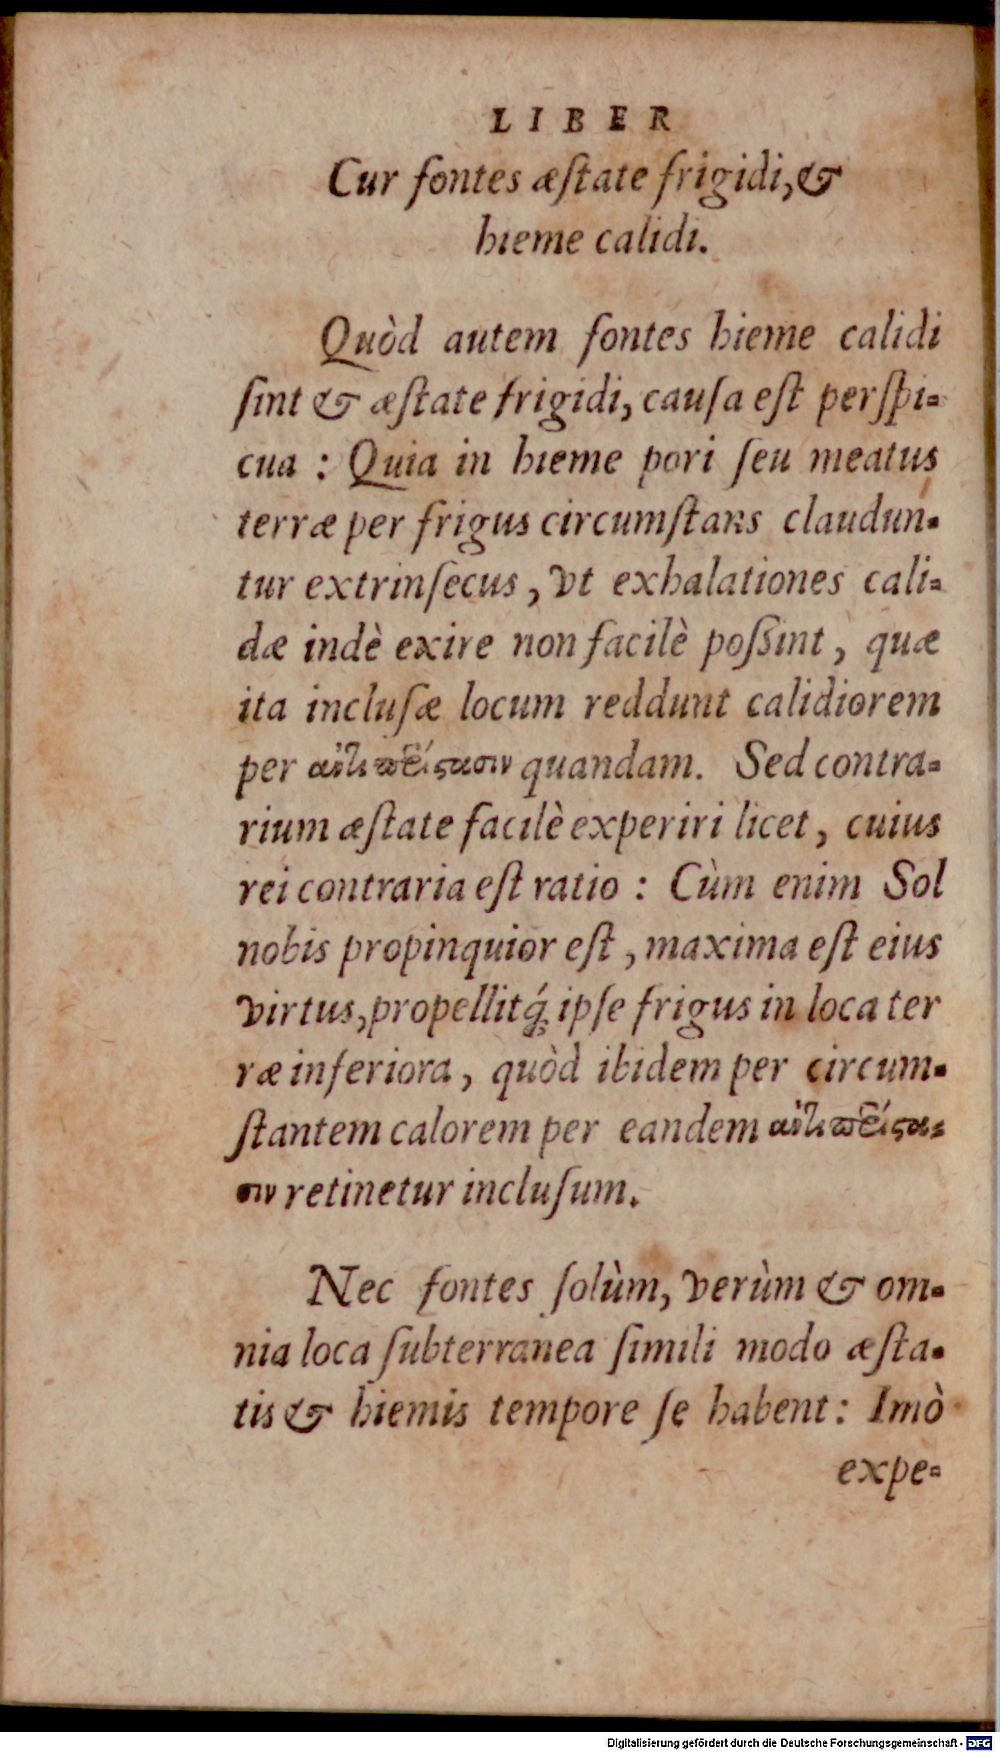 LIBER
Cur fontes æſtate frigidi, &
hieme calidi.
Quòd autem fontes hieme calidi
ſint & æſtate frigidi, cauſa eſt perſpi-
cua : Quia in hieme pori ſeu meatus
terræ per frigus circumſtans claudun-
tur extrinſecus, vt exhalationes cali-
dæ indè exire non facilè poſſint, quæ
ita incluſæ locum reddunt calidiorem
per ἀντιπερίστασιν quandam. Sed contra-
rium æſtate facilè experiri licet, cuius
rei contraria eſt ratio : Cùm enim Sol
nobis propinquior eſt, maxima eſt eius
virtus, propellitq́; ipſe frigus in loca ter
ræ inferiora, quòd ibidem per circum-
ſtantem calorem per eandem ἀντιπερίστα-
σιν retinetur incluſum.
Nec fontes ſolùm, verùm & om-
nia loca ſubterranea ſimili modo æſta-
tis & hiemis tempore ſe habent : Imò
expe-
Digitalisierung gefördert durch die Deutsche Forschungsgemeinschaft - DFG